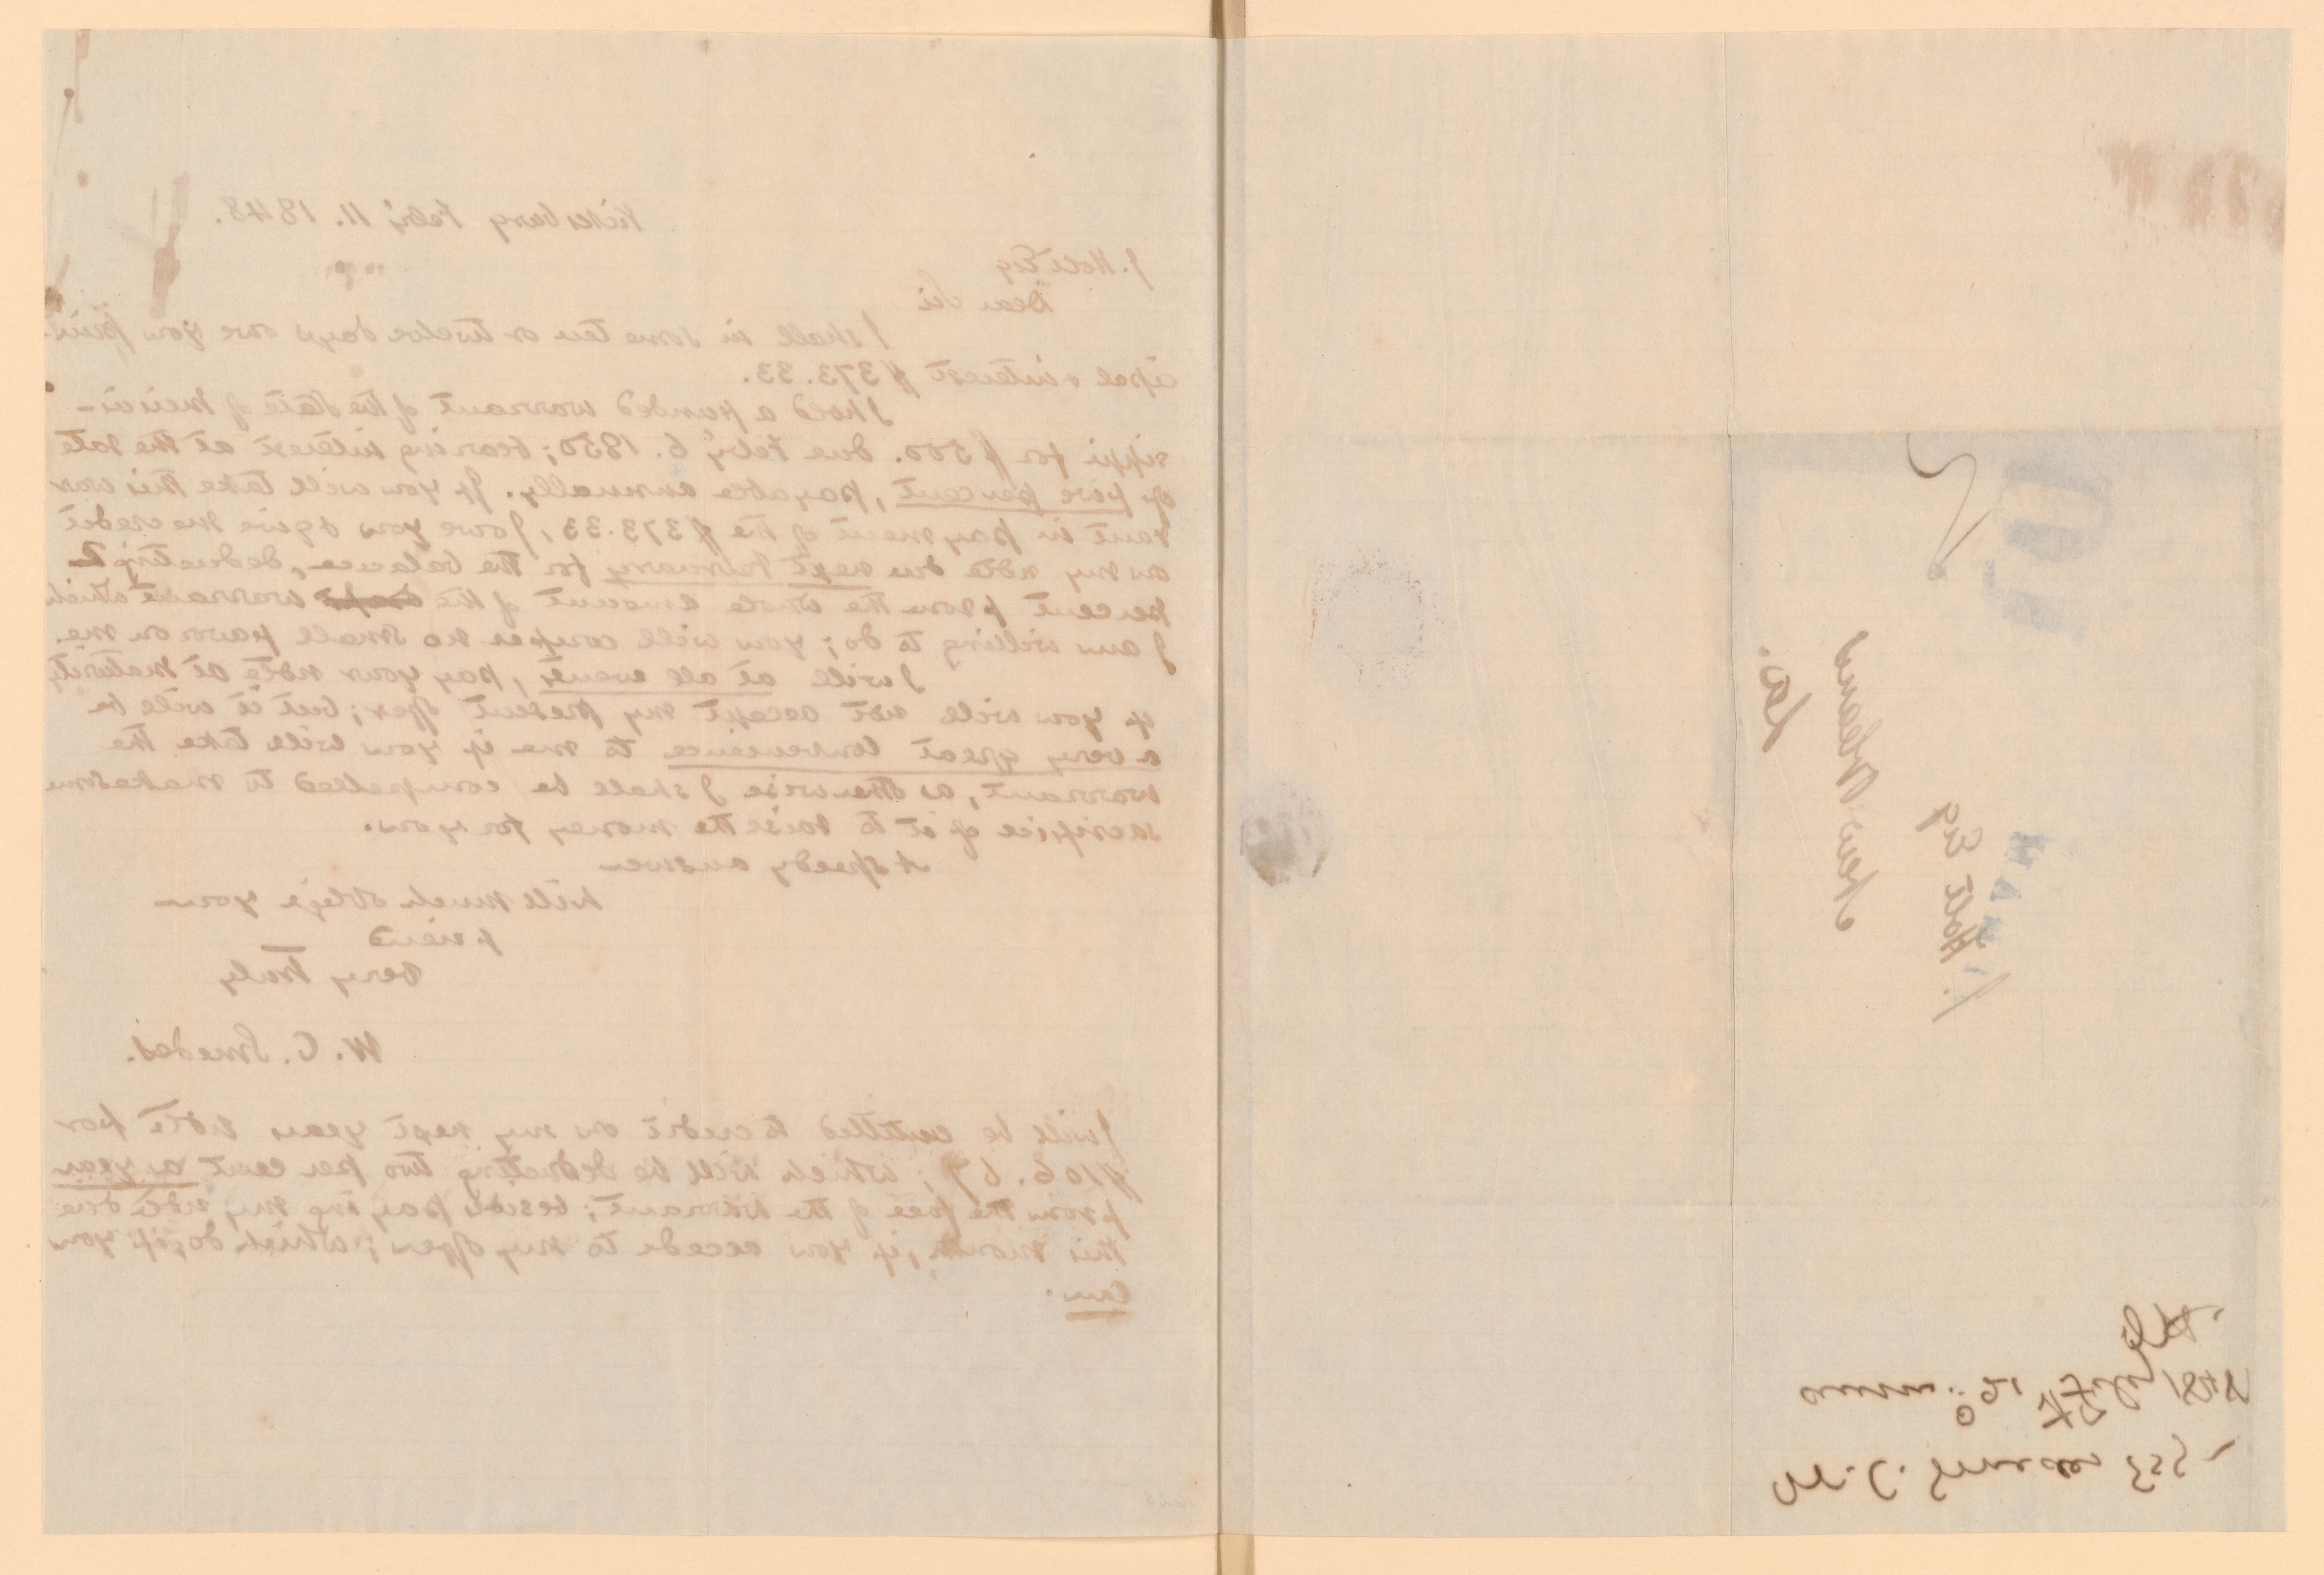 Vicksburg Feby 11. 1848.
J. Holt Esq
Dear Sir
I shall in some ten or twelve days owe you prin-
cipal & interest $373.33.
I hold a funded warrant of the State of Missis-
sippi for $500. due Feby 6. 1850; bearing interest at the rate
of five percent, payable annually. If you will take this war
rant in payment of the $373.33, I owe you & give me credit
on my note due next February for the balance, deducting
percent from the whole amount of the warrant which
I am willing to do; you will confer no small favor on me.
I will at all events, pay your note at maturity
if you will not accept my present offer; but it will be
a very great convenience to me if you will take the
warrant, as otherwise I shall be compelled to make some
sacrifice of it to raise the money for you.
A speedy answer
will much oblige your
friend
Very Truly
W. C. Smedes.
I will be entitled to credit on my next years note for
$106.67; which will be deducting two per cent a year
from the face of the warrant; besides paying my note due
this month, if you accede to my offer; which do, if you
can.
J. Holt Esq
New Orleans
La.
W. C. Smedes Esq
1848